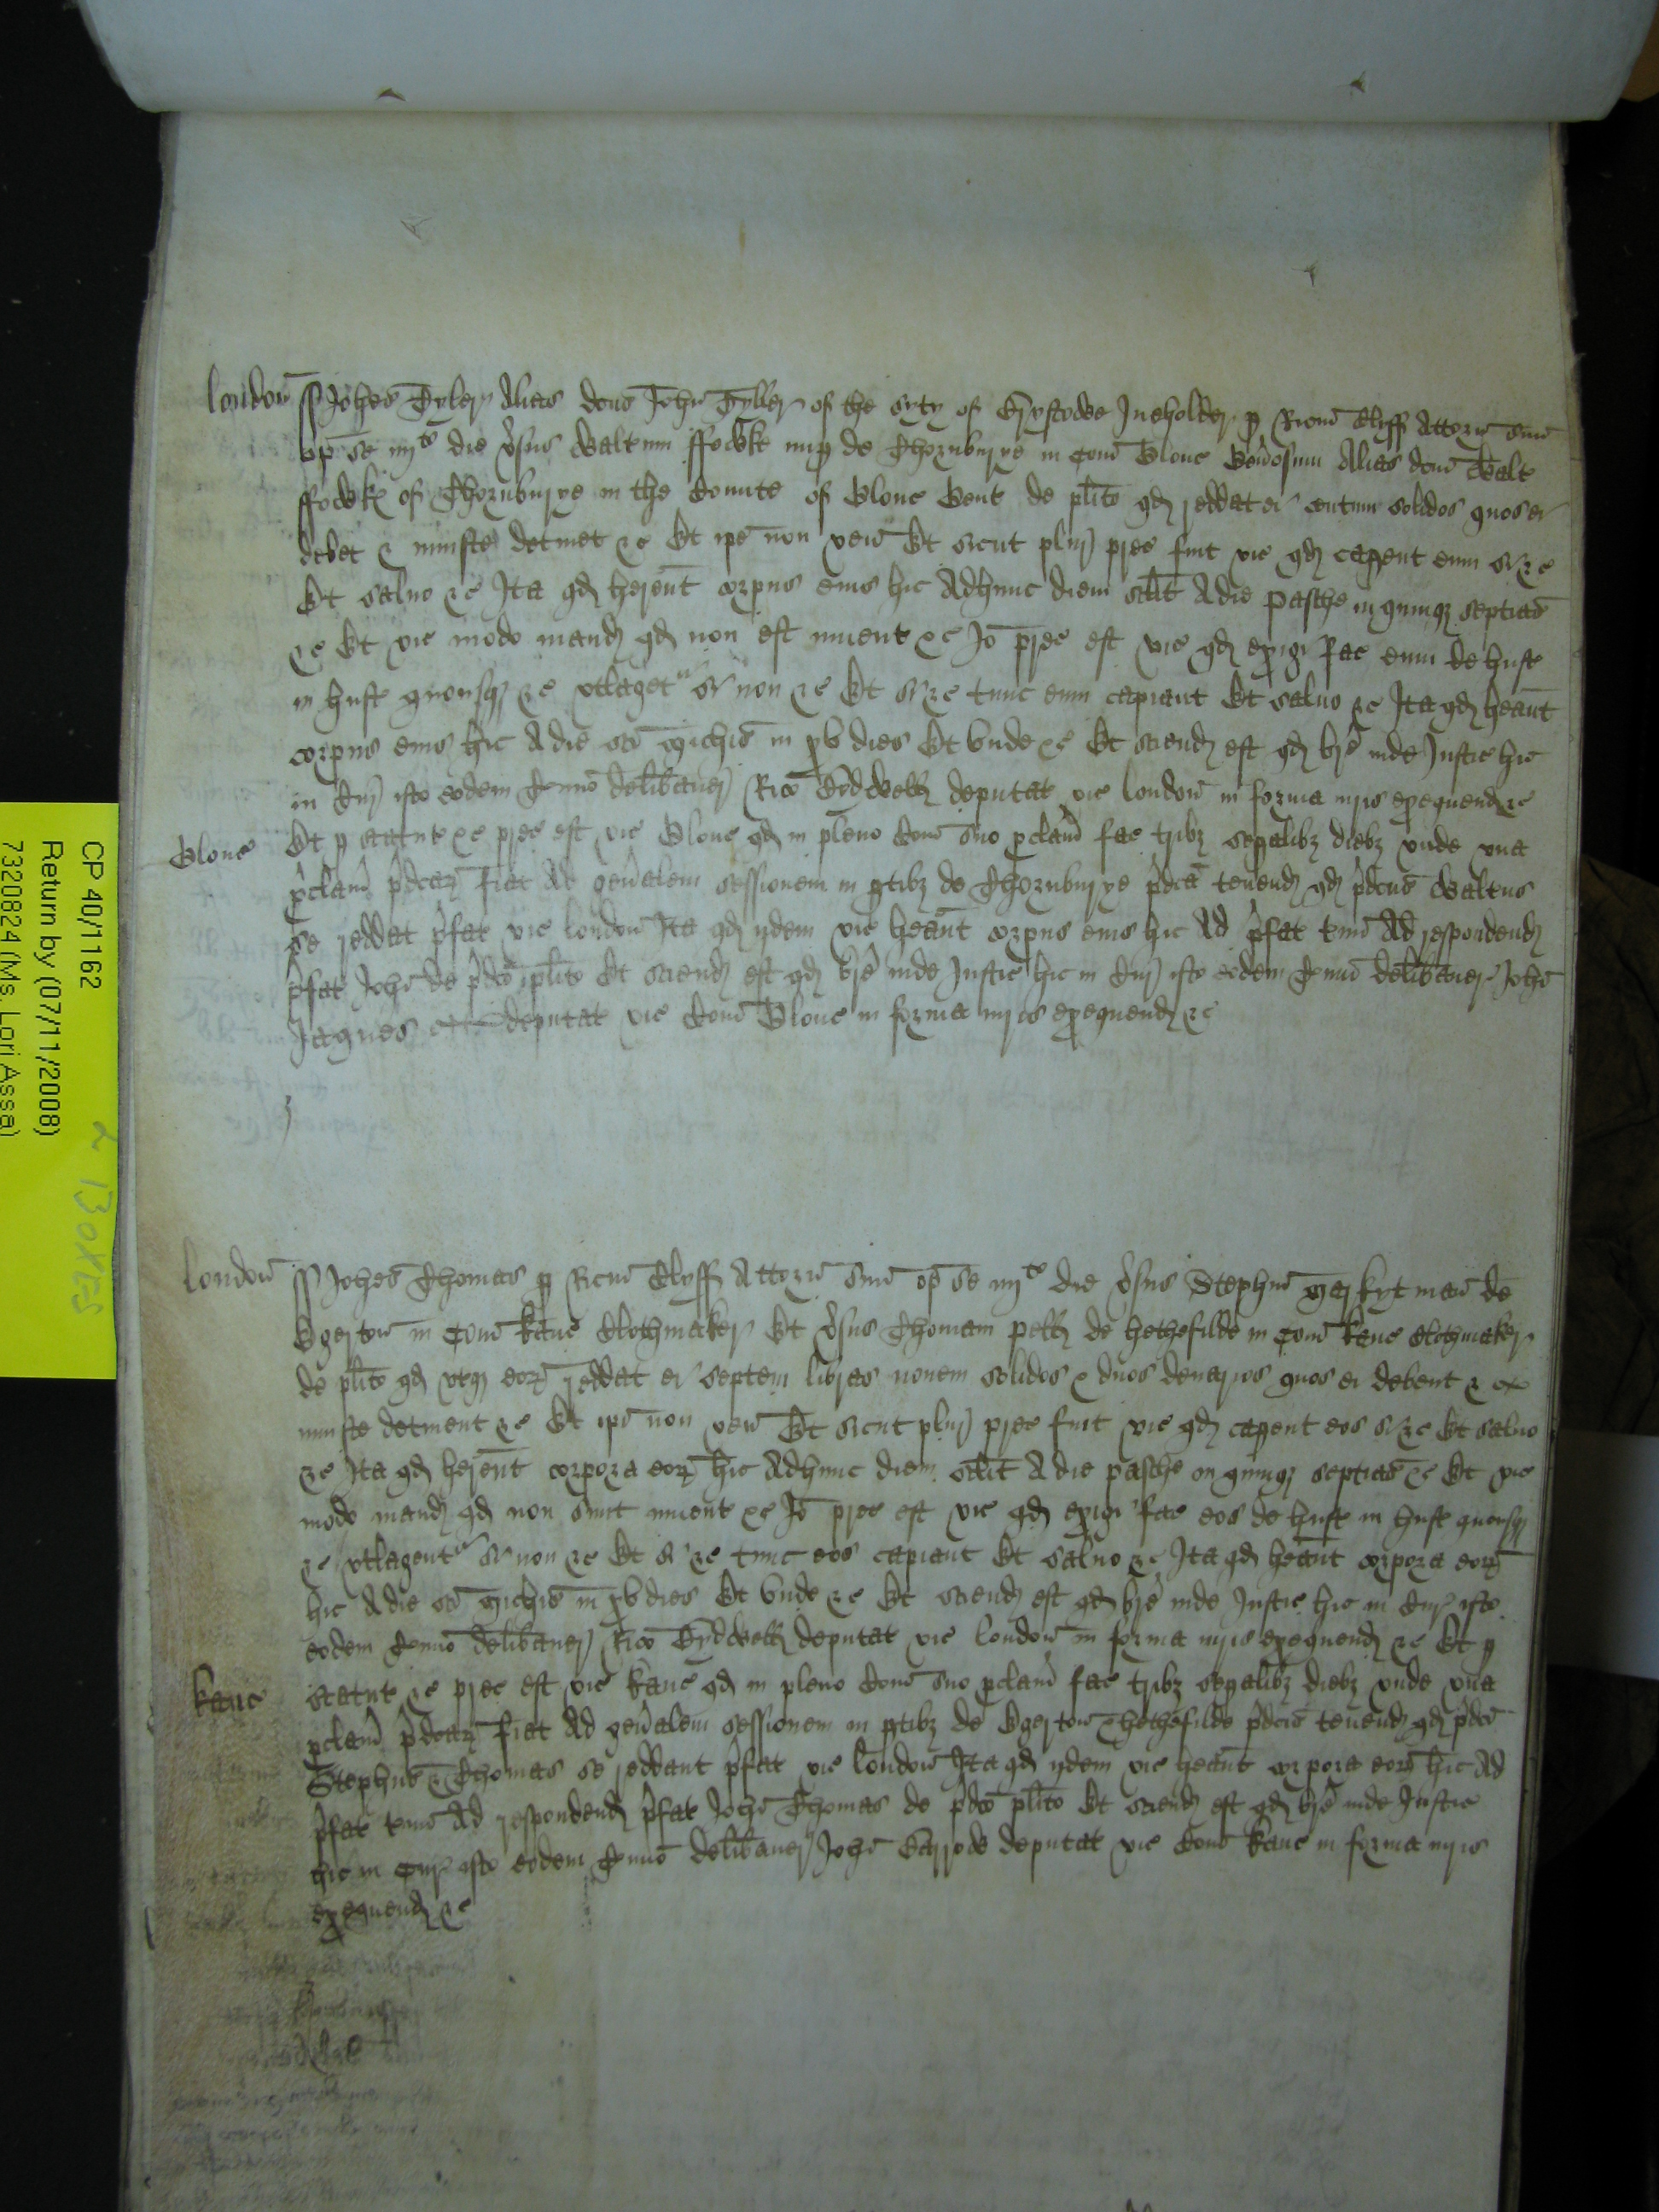 london ss Johes Tyler Alias dcus John Tyller of the Cyty of Brystowe Ineholder p Ricm Clyff Attorn suu
op se iiijto die vsus Walterum ffowke nup de Thornburye in Com Glouc Generosum Alias dcm Walt
ffowke of Thornburye in the Counte of Glouc Gent de plito qd reddat ei centum solidos quos ei
debet & iniuste detinet &c Et ipe non ven Et sicut plur prec fuit vic qd caperent eum si &c
Et saluo &c Ita qd herent corpus eius hic Adhunc diem scilt A die pasche in quinqz septias
&c Et vic modo mand qd non est inuent &c Io prec est vic qd exigi fac eum de hust
in hust quousqz &c vtlaget si non &c Et si &c tunc eum capiant Et saluo &c Ita qd heant
corpus eius hic A die sci Michis in xv dies Et vnde &c Et sciend est qd bre inde Justic hic
in Cur isto eodem Termino delibauer Rico deputat vic london in forma iuris exequend &c
Glouc Et p statut &c prec est vic Glouc qd in pleno Com suo pclam fac tribz sepalibz diebz vnde vna
pclam pdcar fiat Ad genalem sessionem in ptibz de Thornburye pdca tenend qd pdcus Walterus
se reddat pfat vic london Ita qd ijdem vic heant corpus eius hic Ad pfat tmin Ad respondend
pfat Johi de pdco plito Et sciend est qd bre inde Justic hic in Cur isto eodem Termino delibauer Johi
Jaques deputat vic Com Glouc in forma iuris exequend &c
london ss Johes Thomas p Ricm Clyff Attorn suu op se iiijto die vsus Stephm de
Egerton in Com Kanc Clothmaker Et vsus Thomam Pell de hethefilde in Com Kanc Clothmaker
de plito qd vtqz eorz reddat ei septem libras nouem solidos & duos denarios quos ei debent &
iniuste detinent &c Et ipi non ven Et sicut plur prec fuit vic qd caperent eos si &c Et saluo
&c Ita qd herent corpora eorz hic Adhunc diem scilt A die pasche in quinqz septias &c Et vic
modo mand qd non sunt inuent &c Io prec est vic qd exigi fac eos de hust in hust quousqz
&c vtlagent si non &c Et si &c tunc eos capiant Et saluo &c Ita qd heant corpora eorz
hic A die sci Michis in xv dies Et vnde &c Et sciend est qd bre inde Justic hic in Cur isto
eodem Termino delibauer Rico deputat vic london in forma iuris exequend &c Et p
Kanc statut &c prec est vic Kanc qd in pleno Com suo pclam fac tribz sepalibz diebz vnde vna
pclam pdcar fiat Ad genalem sessionem in ptibz de Egerton & hethefilde pdcis tenend qd pdci
Stephus & Thomas se reddant pfat vic london Ita qd ijdem vic heant corpora eorz hic Ad
pfat tmin Ad respondend pfat Johi Thomas de pdco plito Et sciend est qd bre inde Justic
hic in Cur isto eodem Termino delibauer Johi deputat vic Com Kanc in forma iuris
exequend &c
CP 40/1162
Return by (07/11/2008)
7320824 (Ms. Lori Assa)
2 BOXES